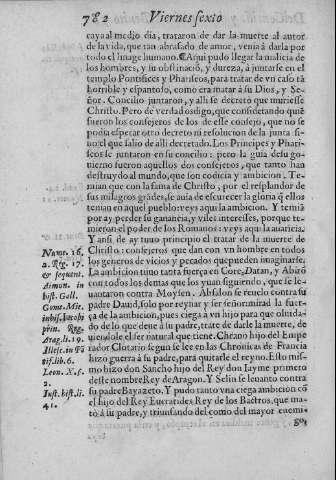 782 Viernes sexto
caya al medio dia, trataron de dar la muerte al autor
de la vida, que tan abrasado de amor, venia á darla por
todo el linage humano. Aqui pudo llegar la malicia de
los hombres, y su obstinacion, y dureza, á juntarse en el
templo Pontifices y Phariseos, para tratar de vn caso tã
horrible y espantoso, como era matar á su Dios, y Se-
ñor. Concilio juntaron, y alli se decreto que muriesse
Christo. Pero de verdad os digo, que considerando quiẽ
fueron los consejeros de los de este consejo, que no se
podia esperar otro decreto ni resolucion de la junta si-
no el que salio de alli decretado. Los Principes y Phari-
seos se juntaron en su concilio: pero la guia desu go-
uierno fueron aquellos dos consejeros, que tanto han
destruydo al mundo, que son codicia y ambicion. Te-
mian que con la fama de Christo, por el resplandor de
sus milagros grãdes, se auia de escurecer la gloria q̃ ellos
tenian en aquel pueblo: veys aqui la ambicion. Y temiã
por ay perder su ganancia, y viles interesses, porque te-
mieron el poder de los Romanos: veys aqui la auaricia.
Y ansi de ay tuuo principio el tratar de la muerte de
Christo: consejeros que dan con vn hombre en todos
los generos de vicios y pecados que pueden imaginarse.
La ambicion tuuo tanta fuerça en Core, Datan, y Abirõ
con todos los demas que los yuan siguiendo, que se le-
uantaron contra Moysen. Absalon se reuelo contra su
padre Dauid, solo por reynar y ser señor: mirad la fuer-
ça de la ambicion, pues ciega á vn hijo para que oluida-
do de lo que deue á su padre, trate de darle la muerte, de
uiendole el ser natural que tiene. Cherano hijo del Empe
rador Clotario segun se lee en las Chronicas de Francia
hizo guerra á su padre, para quitarle el reyno. Esto mis-
mo hizo don Sancho hijo del Rey don Iayme primero
deste nombre Rey de Aragon. Y Selin se leuanto contra
su padre Bayazeto. Y pudo tanto vna ciega ambicion cõ
el hijo del Rey Eucratides Rey de los Bactros, que ma-
tó á su padre, y triunfando del como del mayor enemi-
Nume. 16.
2. Reg. 17.
& sequent.
Aimon. in
hist. Gall.
Gome. Mie.
in his. Iacobi
prim. Reg.
Arag. li. 19.
Illesc. in Põ
tif. lib. 6.
Leon. X. §.
2.
Iust. hist. li.
41.